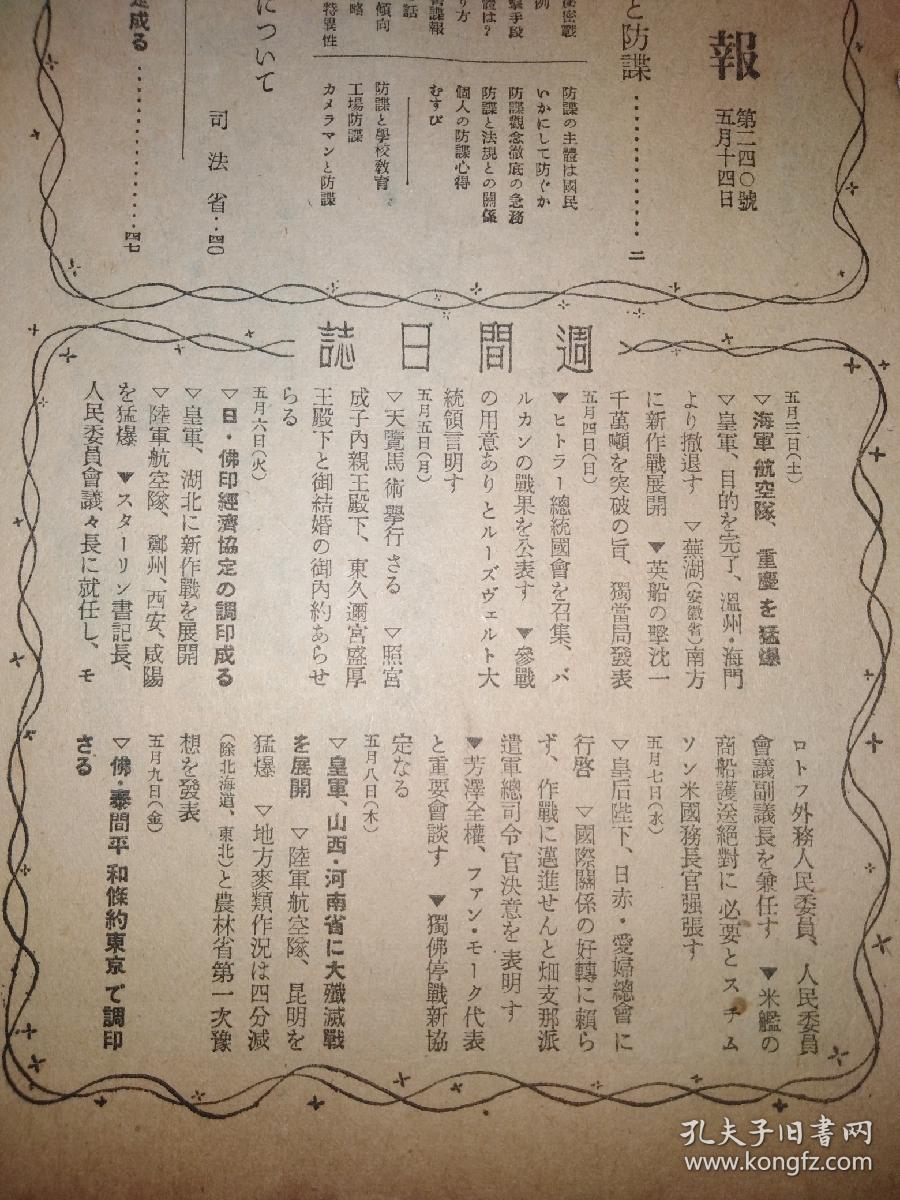 報
第二四〇號
五月十四日
と防諜……………二
防諜の主體は國民
いかにして防ぐか
防諜觀念徹底の急務
防諜と法規との關係
個人の防諜心得
むすび
防諜と學校教育
工場防諜
カメラマンと防諜
祕密戰
例
擊手段
體は?
り方
諜報
話
傾向
略
特異性
について
司法省‥四〇
成る……………四七
週間日誌
五月三日(土)
▽海軍航空隊、重慶を猛爆
▽皇軍、目的を完了、溫州・海門
より撤退す ▽蕪湖(安徽省)南方
に新作戰展開 ▼英船の擊沈一
千萬噸を突破の旨、獨當局發表
五月四日(日)
▼ヒトラー總統國會を召集、バ
ルカンの戰果を公表す ▼參戰
の用意ありとルーズヴェルト大
統領言明す
五月五日(月)
▽天覽馬術擧行さる ▽照宮
成子內親王殿下、東久邇宮盛厚
王殿下と御結婚の御內約あらせ
らる
五月六日(火)
▽日・佛印經濟協定の調印成る
▽皇軍、湖北に新作戰を展開
▽陸軍航空隊、鄭州、西安、咸陽
を猛爆 ▼スターリン書記長、
人民委員會議々長に就任し、モ
ロトフ外務人民委員、人民委員
會議副議長を兼任す ▼米艦の
商船護送絕對に必要とスチム
ソン米國務長官强張す
五月七日(水)
▽皇后陛下、日赤・愛婦總會に
行啓 ▽國際關係の好轉に賴ら
ず、作戰に邁進せんと畑支那派
遣軍總司令官決意を表明す
▼芳澤全權、ファン・モーク代表
と重要會談す ▼獨佛停戰新協
定なる
五月八日(木)
▽皇軍、山西・河南省に大殲滅戰
を展開 ▽陸軍航空隊、昆明を
猛爆 ▽地方麥類作況は四分減
(除北海道、東北)と農林省第一次豫
想を發表
五月九日(金)
▽佛・泰間平和條約東京で調印
さる
孔夫子旧书网
www.kongfz.com